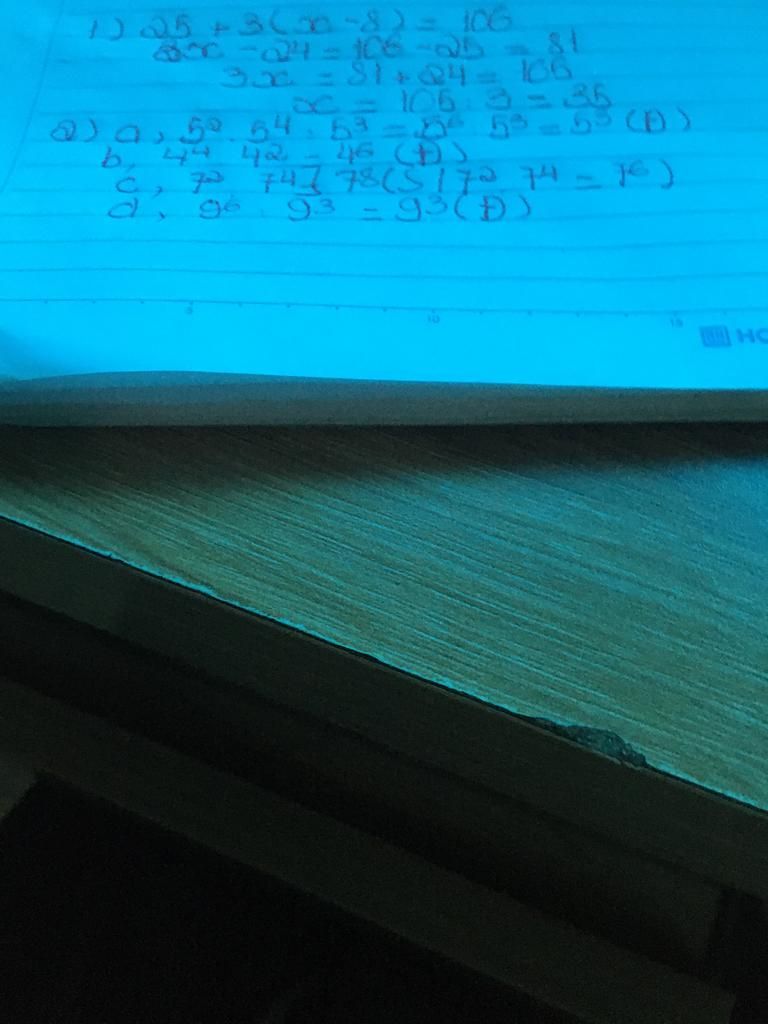 1) 25 + 3(x - 8) = 106
3x - 24 = 106 - 25 = 81
3x = 81 + 24 = 105
x = 105 : 3 = 35
2) a, 5² . 5⁴ : 5³ = 5⁶ 5³ = 5³ (Đ)
b, 4⁴ 4² = 4⁶ (Đ)
c, 7² 7⁴ 7⁸ (S) 7² 7⁴ = 7⁶)
d, 9⁶ : 9³ = 9³ (Đ)
5 10 15